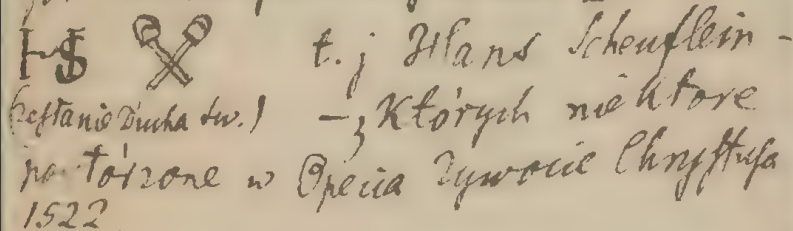 HS t. j Hans Scheuflein -
(zesłanie Ducha św.) — z Których niektore
powtórzone w Opecia Zywocie Chrystusa
1522